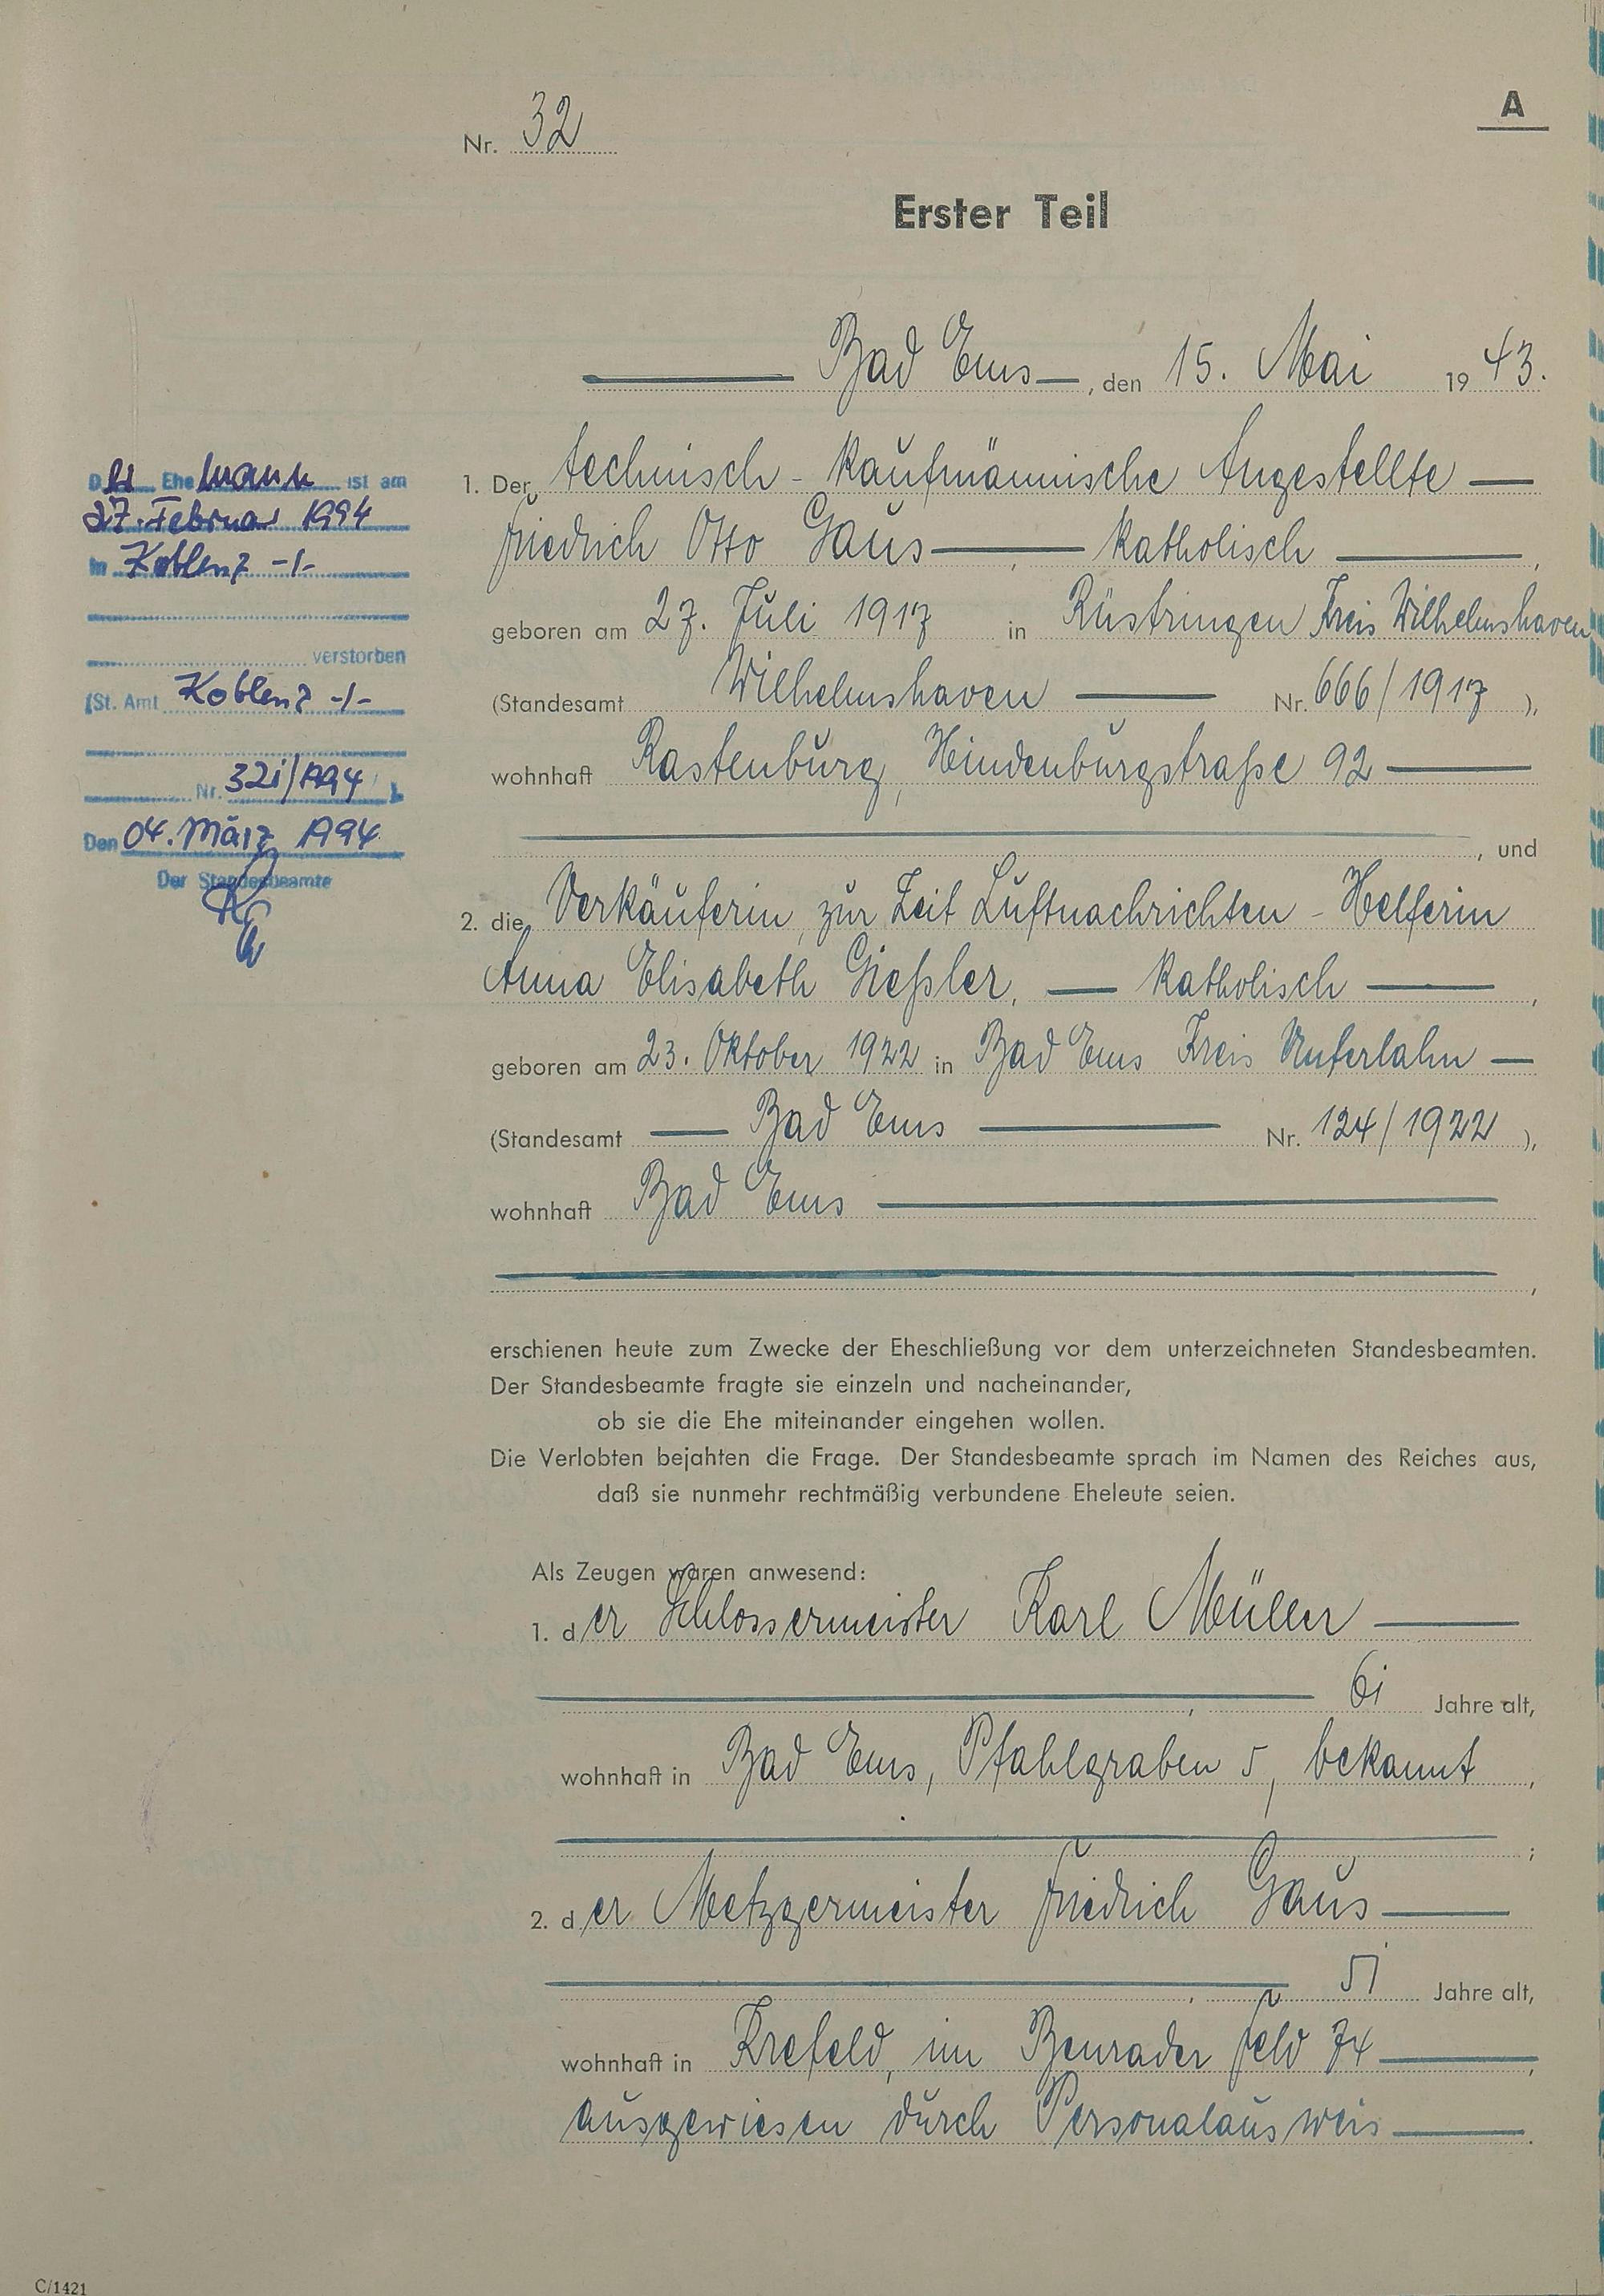 Nr. 32
A
Erster Teil
Bad Ems, den 15. Mai 1943.
Der Ehemann ist am
27. Februar 1994
in Koblenz -/-
verstorben
(St. Amt Koblenz -/-
Nr. 321/1994 ).
Den 04. März 1994
Der Standesbeamte
1. Der technisch-kaufmännische Angestellte
Friedrich Otto Gaus, katholisch,
geboren am 27. Juli 1917 in Rüstringen Kreis Wilhelmshaven
(Standesamt Wilhelmshaven Nr. 666/1917 ),
wohnhaft Rastenburg, Hindenburgstraße 92
, und
2. die Verkäuferin, zur Zeit Luftnachrichten-Helferin
Anna Elisabeth Gießler, katholisch,
geboren am 23. Oktober 1922 in Bad Ems Kreis Unterlahn
(Standesamt Bad Ems Nr. 124/1922 ),
wohnhaft Bad Ems
,
erschienen heute zum Zwecke der Eheschließung vor dem unterzeichneten Standesbeamten.
Der Standesbeamte fragte sie einzeln und nacheinander,
ob sie die Ehe miteinander eingehen wollen.
Die Verlobten bejahten die Frage. Der Standesbeamte sprach im Namen des Reiches aus,
daß sie nunmehr rechtmäßig verbundene Eheleute seien.
Als Zeugen waren anwesend:
1. der Schlossermeister Karl Müller
, 61 Jahre alt,
wohnhaft in Bad Ems, Pfahlgraben 5, bekannt,
;
2. der Metzgermeister Friedrich Gaus
, 51 Jahre alt,
wohnhaft in Krefeld, im Benrader Feld 74,
ausgewiesen durch Personalausweis.
C/1421